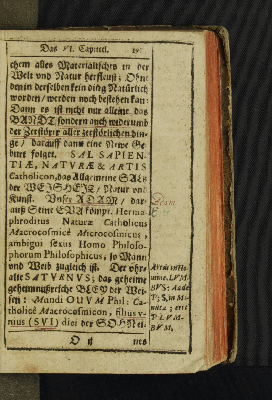 Das VI. Capitel.
chem alles Materialisches in der
Welt vnd Natur herfleust; Ohn
den in derselben kein ding Natürlich
worden / werden noch bestehen kan:
Dann es ist nicht nur alleine das
BANDT, sondern auch widerumb
der Zerstörer aller zerstörlichen din-
ge / darauff dann eine Newe Ge-
burt folget. SAL SAPIEN-
TIÆ, NATVRÆ & ARTIS
Catholicon, das Allgemeine SALZ
der WEISHEIT / Natur vnd
Kunst. Vnser ADAM / dar-
auß Seine EVA kömpt. Herma-
phroditus Naturæ Catholicus
Macrocosmicè Microcosmicus,
ambigui sexus Homo Philoso-
phorum Philosophicus; so Mann
vnd Weib zugleich ist. Der vhr-
alte SATVRNVS; das geheime
geheimnußreiche BLEY der Wei-
sen: Mundi OUVM Phil: Ca-
tholicè Macrocosmicon, filius v-
nius (SVI) diei der SOHN ei-
O ij
nes